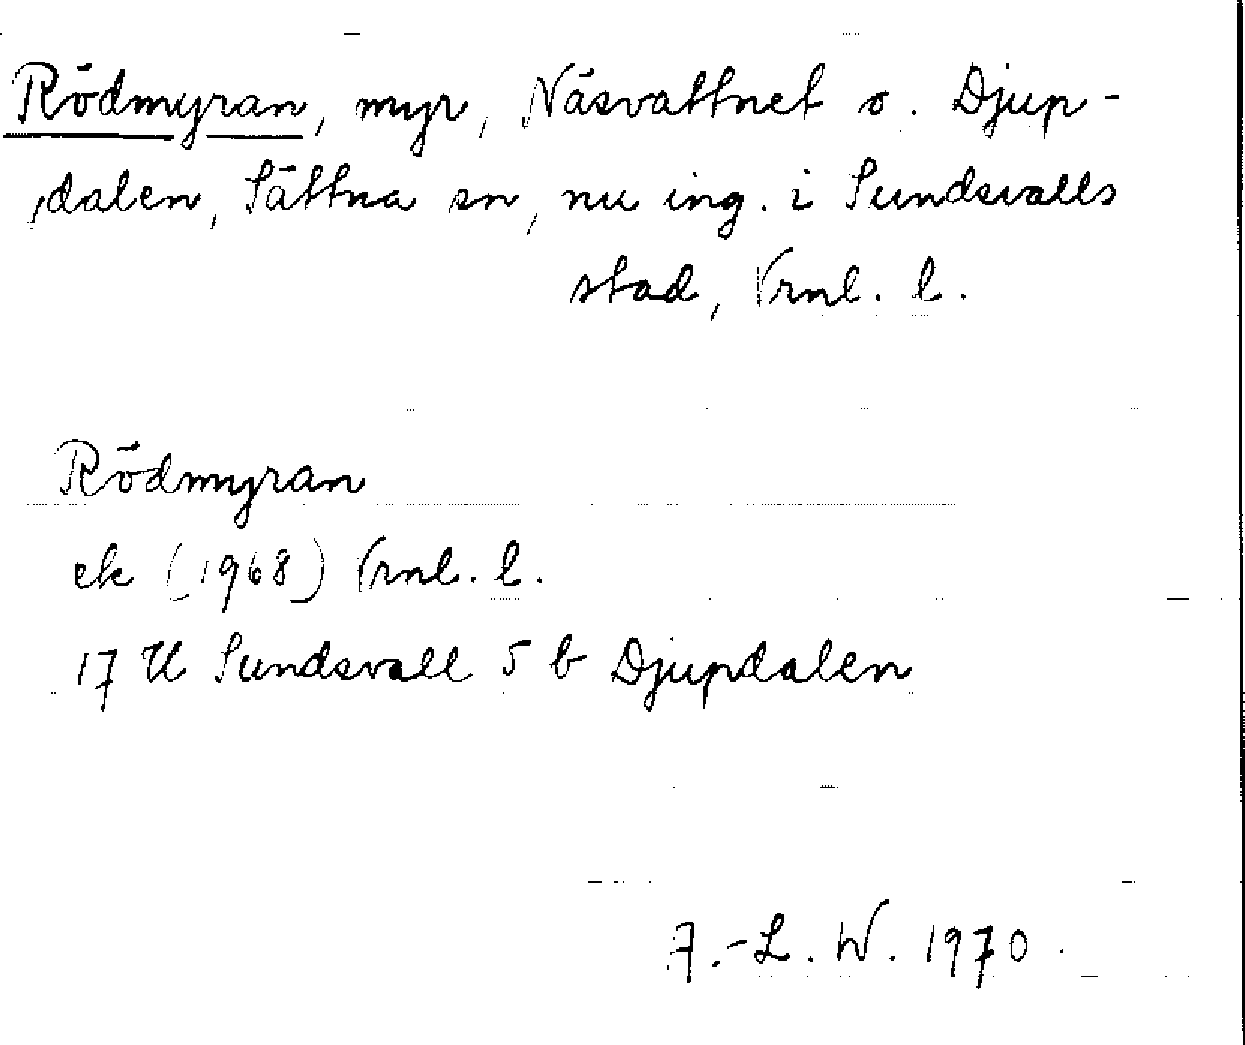 Rödmyran, myr, Näsvattnet o. Djup-
dalen, Sättna sn, nu ing. i Sundsvalls
stad, Vrnl. l.
Rödmyran
ek (1968) Vrnl. l.
17 H Sundsvall 5 b Djupdalen
A.-L. W. 1970.